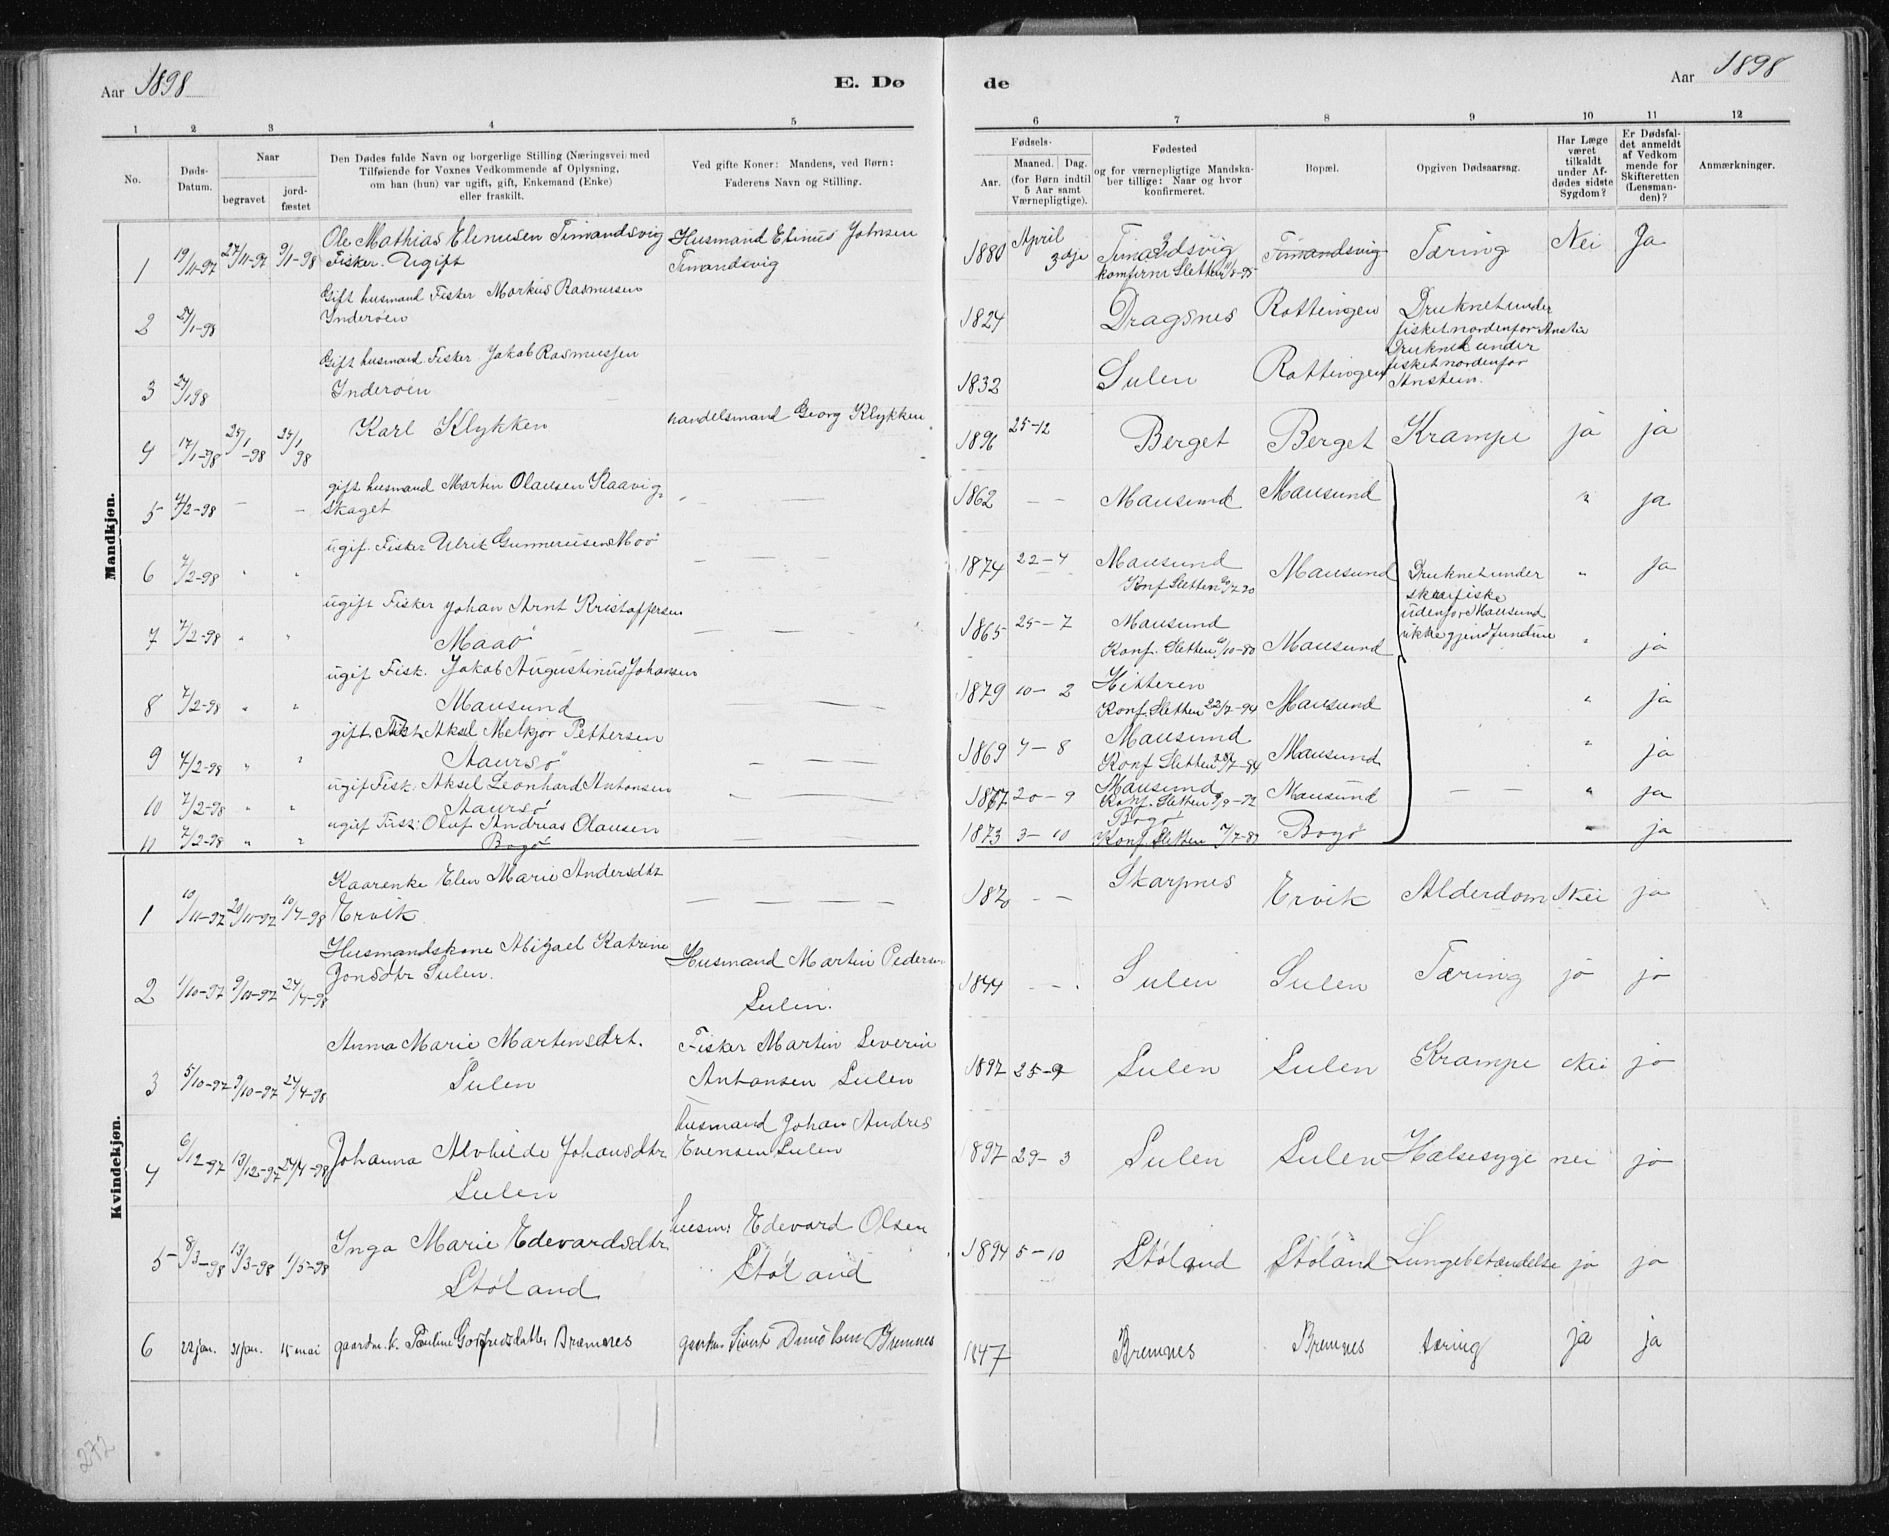 Aar 1898
E. Dø
de
Aar 1898
1 2 3 4 5 6 7 8 9 10 11 12
No.
Døds-Datum.
Naar
begravet
jord-fæstet
Den Dødes fulde Navn og borgerlige Stilling (Næringsvei) med
Tilføiende for Voxnes Vedkommende af Oplysning,
om han (hun) var ugift, gift, Enkemand (Enke)
eller fraskilt.
Ved gifte Koner: Mandens, ved Børn:
Faderens Navn og Stilling.
Fødsels-
Aar.
Maaned. Dag.
(for Børn indtil
5 Aar samt
Værnepligtige).
Fødested
og for værnepligtige Mandska-
ber tillige: Naar og hvor
konfirmeret.
Bopæl.
Opgiven Dødsaarsag.
Har Læge
været
tilkaldt
under Af-
dødes sidste
Sygdom?
Er Dødsfal-
det anmeldt
af Vedkom
mende for
Skifteretten
(Lensman-
den)?
Anmærkninger.
Mandkjøn.
1 19/11-97 27/11-97 9/1-98 Ole Mathias Elinusen Timandsvig Husmand Elinus Johnsen 1880 April Timandsvig Timandsvig Tæring Nei Ja
Fisker. Ugift Timandsvig 3dje Sletten
2 27/1-98 Gift husmand Fisker Markus Rasmusen 1824 Dragsnes Rottingen Druknet under
Inderøen fisket nordenfor Anstein
3 27/1 98 Gift husmand Fisker Jakob Rasmussen 1832 Sulen Rottingen Druknet under
Inderøen fisket nordenfor
Anstein.
4 17/1-98 25/1-98 25/1 98 Karl Klykken handelsmand Georg Klykken 1896 25-12 Berget Berget Krampe ja ja
5 7/2-98 - - gift husmand Martin Olausen Kaavig, - — — 1862 - - Mausund Mausund " ja
skaget
6 7/2-98 " " ugif. Fisker Ulrik Gunneriusen — — 1874 22-4 Mausund Mausund Druknet under " Ja
Konf Sletten skreifiske
7 7/2-98 " " ugift Fisker Johan Arnt Kristoffersen — — — 1865 25-7 Mausund Mausund udenfor Mausund " ja
Maaø Konf. Sletten /10-80 ikke gjenfundne
8 7/2-98 " " ugif Fisk. Jakob Augustinus Johansen — — — 1879 10-2 Hitteren Mausund " ja
Mausund Konf. Sletten 22/7-94
9 7/2-98 " " gift. Fisk Aksel Melkjor Pettersen — — — 1869 7-8 Mausund Mausund " ja
Aaursø Konf. Sletten -84
10 7/2-98 " " ugif Fisk. Aksel Leonhard Antonsen — — — 1867 20-9 Mausund Mausund — — " ja
Aaursø Konf. Sletten
11 7/2-98 " " ugif Fisk: Oluf Andreas Olausen 1873 3-10 Bogø Bogø " ja
Bogø Konf. Sletten
Kvindekjøn.
1 10/11-97 20/11-97 10/7-98 Kaarenke Elen Marie Andersdtr — — — — — - - Skarpnes Ervik Alderdom Nei ja
Ervik.
2 1/10-97 9/10-97 24/4-98 Husmandskone Abigael Katrine Husmand Martin Pedersen 1844 - - . Sulen Sulen Tæring ja ja
Jonsdtr Sulen. Sulen.
3 5/10-97 9/10-97 24/4-98 Anna Marie Martinsdtrt. Fisker Martin Severin 1897 25-9 Sulen Sulen Krampe Nei ja
Sulen Antonsen Sulen
4 6/12-97 13/12-97 24/4-98 Johanna Alvhilde Johansdtr husmand Johan Andres 1897 29-3 Sulen Sulen Halsesyge nei ja
Sulen Evensen Sulen
5 8/3-98 13/3-98 1/5-98 Inga Marie Edevardsdtr. husm: Edevard Olsen 1894 5-10 Støland Støland Lungebetændelse ja ja
Støland Støland
6 22 jan. 31 jan. 15 mai gaardm. k. Pauline Gotfridsdatter Bræmnes Sivert Bremnes 1847 Bremnes Bremnes tæring ja ja
272